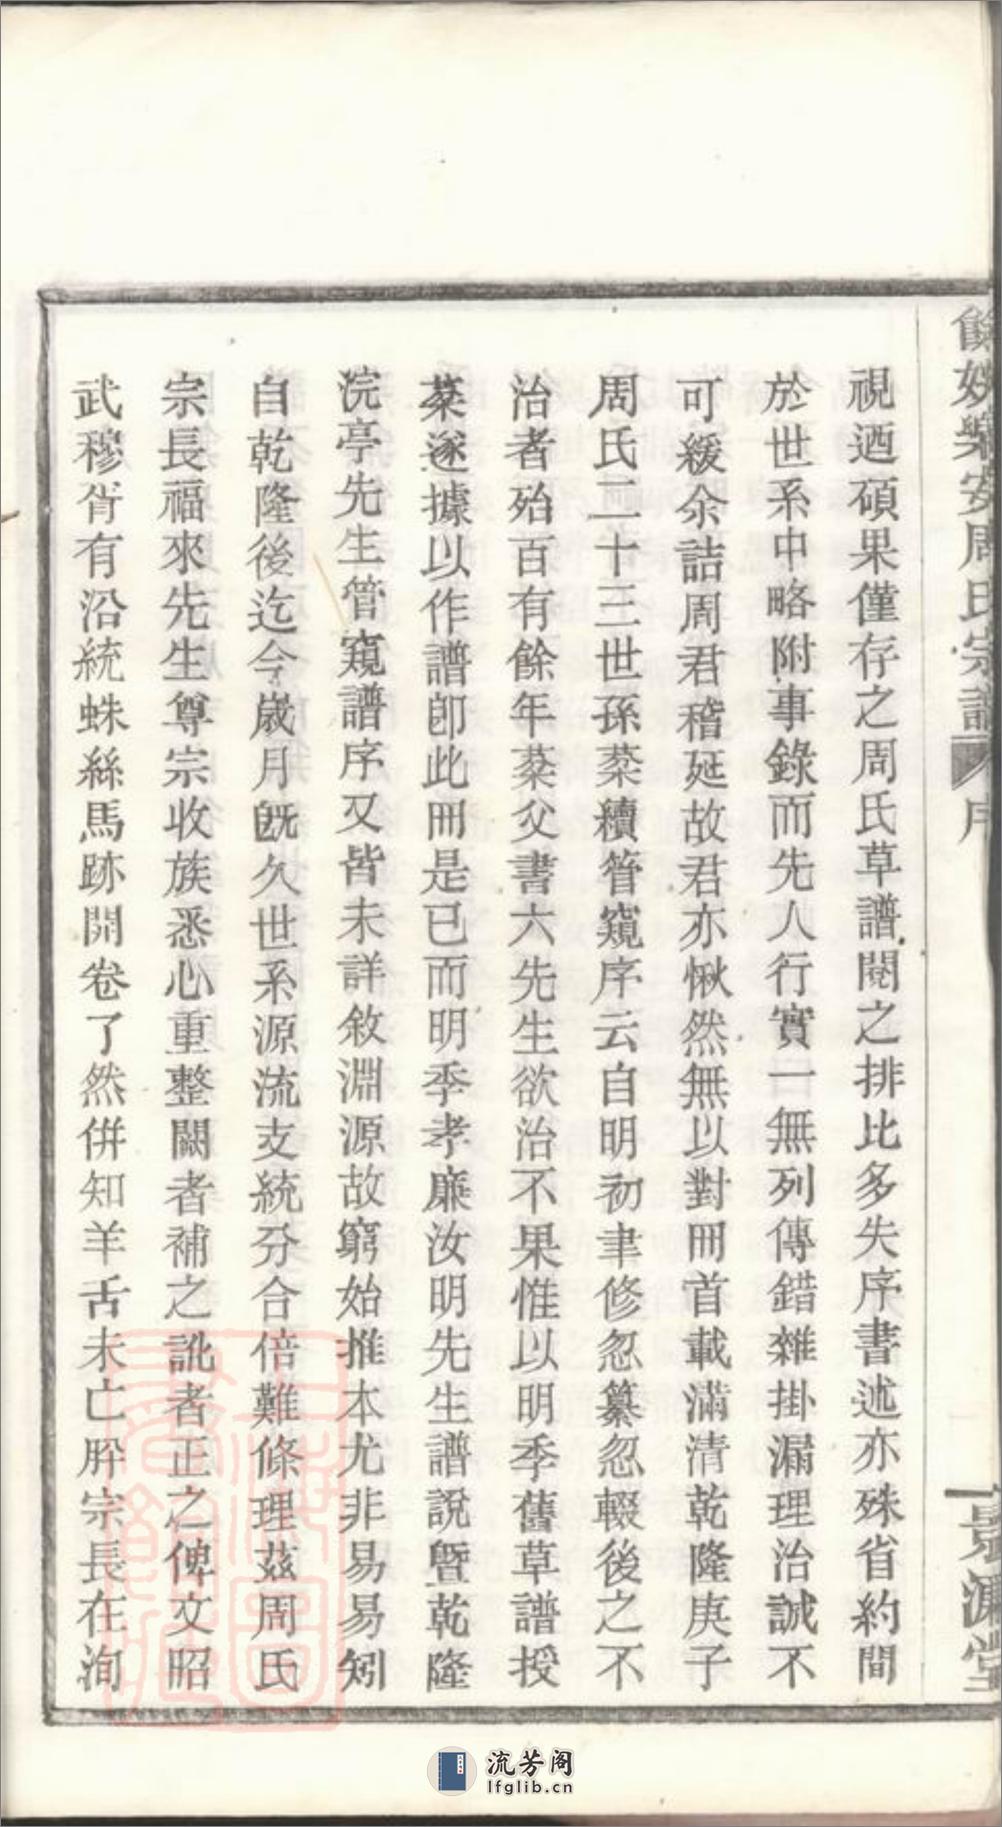 餘姚樂安周氏宗譜 序 一 景濂堂
視迺碩果僅存之周氏草譜閱之排比多失序書述亦殊省約間
於世系中略附事錄而先人行實一無列傳錯雜掛漏理治誠不
可緩余詰周君稽延故君亦愀然無以對冊首載滿清乾隆庚子
周氏二十三世孫棻續管窺序云自明初聿修忽纂忽輟後之不
治者殆百有餘年棻父書六先生欲治不果惟以明季舊草譜授
棻遂據以作譜卽此冊是已而明季孝廉汝明先生譜說曁乾隆
浣亭先生管窺譜序又皆未詳敘淵源故窮始推本尤非易易矧
自乾隆後迄今歲月旣久世系源流支統分合倍難條理茲周氏
宗長福來先生尊宗收族悉心重整闕者補之訛者正之俾文昭
武穆胥有沿統蛛絲馬跡開卷了然倂知羊舌未亡肸宗長在洵
流芳阁
lfglib.cn